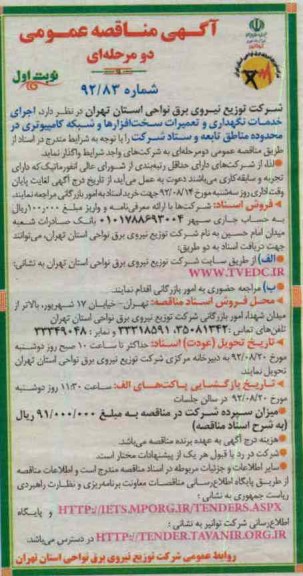 آگهی مناقصه عمومی
دو مرحله‌ای
نوبت اول
شماره ۹۲/۸۳
شرکت توزیع نیروی برق نواحی استان تهران در نظر دارد، اجرای
خدمات نگهداری و تعمیرات سخت‌افزارها و شبکه کامپیوتری در
محدوده مناطق تابعه و ستاد شرکت را با توجه به شرایط مندرج در اسناد از
طریق مناقصه عمومی دومرحله‌ای به شرکت‌های واجد شرایط واگذار نماید.
لذا، از شرکت‌های دارای حداقل رتبه‌بندی از شورای عالی انفورماتیک که دارای
تجربه و سابقه کاری می‌باشند دعوت به عمل می‌آید، از تاریخ درج آگهی لغایت پایان
وقت اداری روز سه‌شنبه مورخ ۹۲/۰۸/۱۴ جهت خرید اسناد به امور بازرگانی مراجعه نمایند.
فروش اسناد: شرکت‌ها با ارائه معرفی‌نامه و واریز مبلغ ۱۰۰٬۰۰۰ ریال
به حساب جاری سپهر ۰۱۰۱۷۸۸۶۹۳۰۰۴ بانک صادرات شعبه
میدان امام حسین به نام شرکت توزیع نیروی برق نواحی استان تهران، می‌توانند
جهت دریافت اسناد به دو طریق:
الف) از طریق سایت شرکت توزیع نیروی برق نواحی استان تهران به نشانی:
WWW.TVEDC.IR
ب) مراجعه حضوری به امور بازرگانی اقدام نمایند.
محل فروش اسناد مناقصه: تهران-خیابان ۱۷ شهریور، بالاتر از
میدان شهدا، امور بازرگانی شرکت توزیع نیروی برق نواحی استان تهران
تلفن‌های تماس: ۳۵۰۸۱۳۴۲، ۳۳۲۱۸۵۹۱ و نمابر: ۳۳۳۴۹۰۴۸
تاریخ تحویل (عودت) اسناد: حداکثر تا ساعت ۱۰ صبح روز دوشنبه
مورخ ۹۲/۰۸/۲۰ به دبیرخانه مرکزی شرکت توزیع نیروی برق نواحی استان تهران
تحویل نمایند.
تاریخ بازگشایی پاکت‌های الف: ساعت ۱۱:۳۰ روز دوشنبه
مورخ ۹۲/۰۸/۲۰ در سالن جلسات
میزان سپرده شرکت در مناقصه به مبلغ ۹۱/۰۰۰/۰۰۰ ریال
(به شرح اسناد مناقصه)
هزینه درج آگهی به عهده برنده مناقصه می‌باشد.
شرکت در رد یا قبول هر یک از پیشنهادات مختار است.
سایر اطلاعات و جزئیات مربوطه در اسناد مناقصه مندرج است و اطلاعات مناقصه
از طریق پایگاه اطلاع‌رسانی مناقصات معاونت برنامه‌ریزی و نظارت راهبردی
ریاست جمهوری به نشانی:
HTTP://IETS.MPORG.IR/TENDERS.ASPX و پایگاه
اطلاع‌رسانی شرکت توانیر به نشانی:
HTTP://TENDER.TAVANIR.ORG.IR در دسترس می‌باشد.
روابط عمومی شرکت توزیع نیروی برق نواحی استان تهران